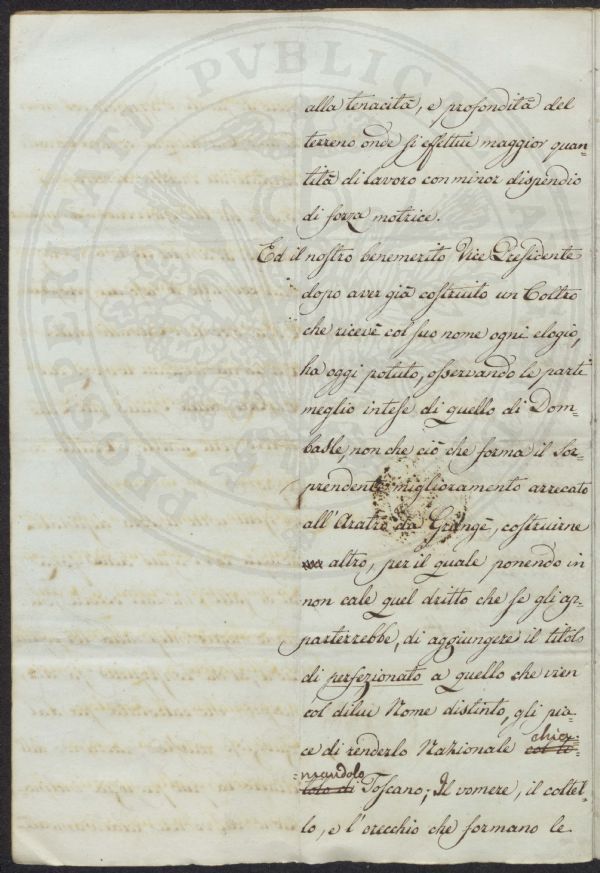 alla tenacità, e profondità del
terreno onde si effettui maggior quan=
tità di lavoro con minor dispendio
di forza motrice.
Ed il nostro benemerito Vice Presidente
dopo aver già costruito un Coltro
che ricevè col suo nome ogni elogio,
ha oggi potuto, osservando le parti
meglio intese di quello di Dom=
basle non che ciò che forma il sor=
prendente miglioramento arrecato
all'Aratro da Grangè, costruirne
altro, per il quale ponendo in
non cale quel dritto che se gli ap=
parterrebbe, di aggiungere il titolo
di perfezionato a quello che vien
col dilui Nome distinto, gli pia=
ce di renderlo Nazionale col ti= chia=
tolo di =mandolo Toscano; Il vomere, il coltel=
lo, e l'orecchio che formano le